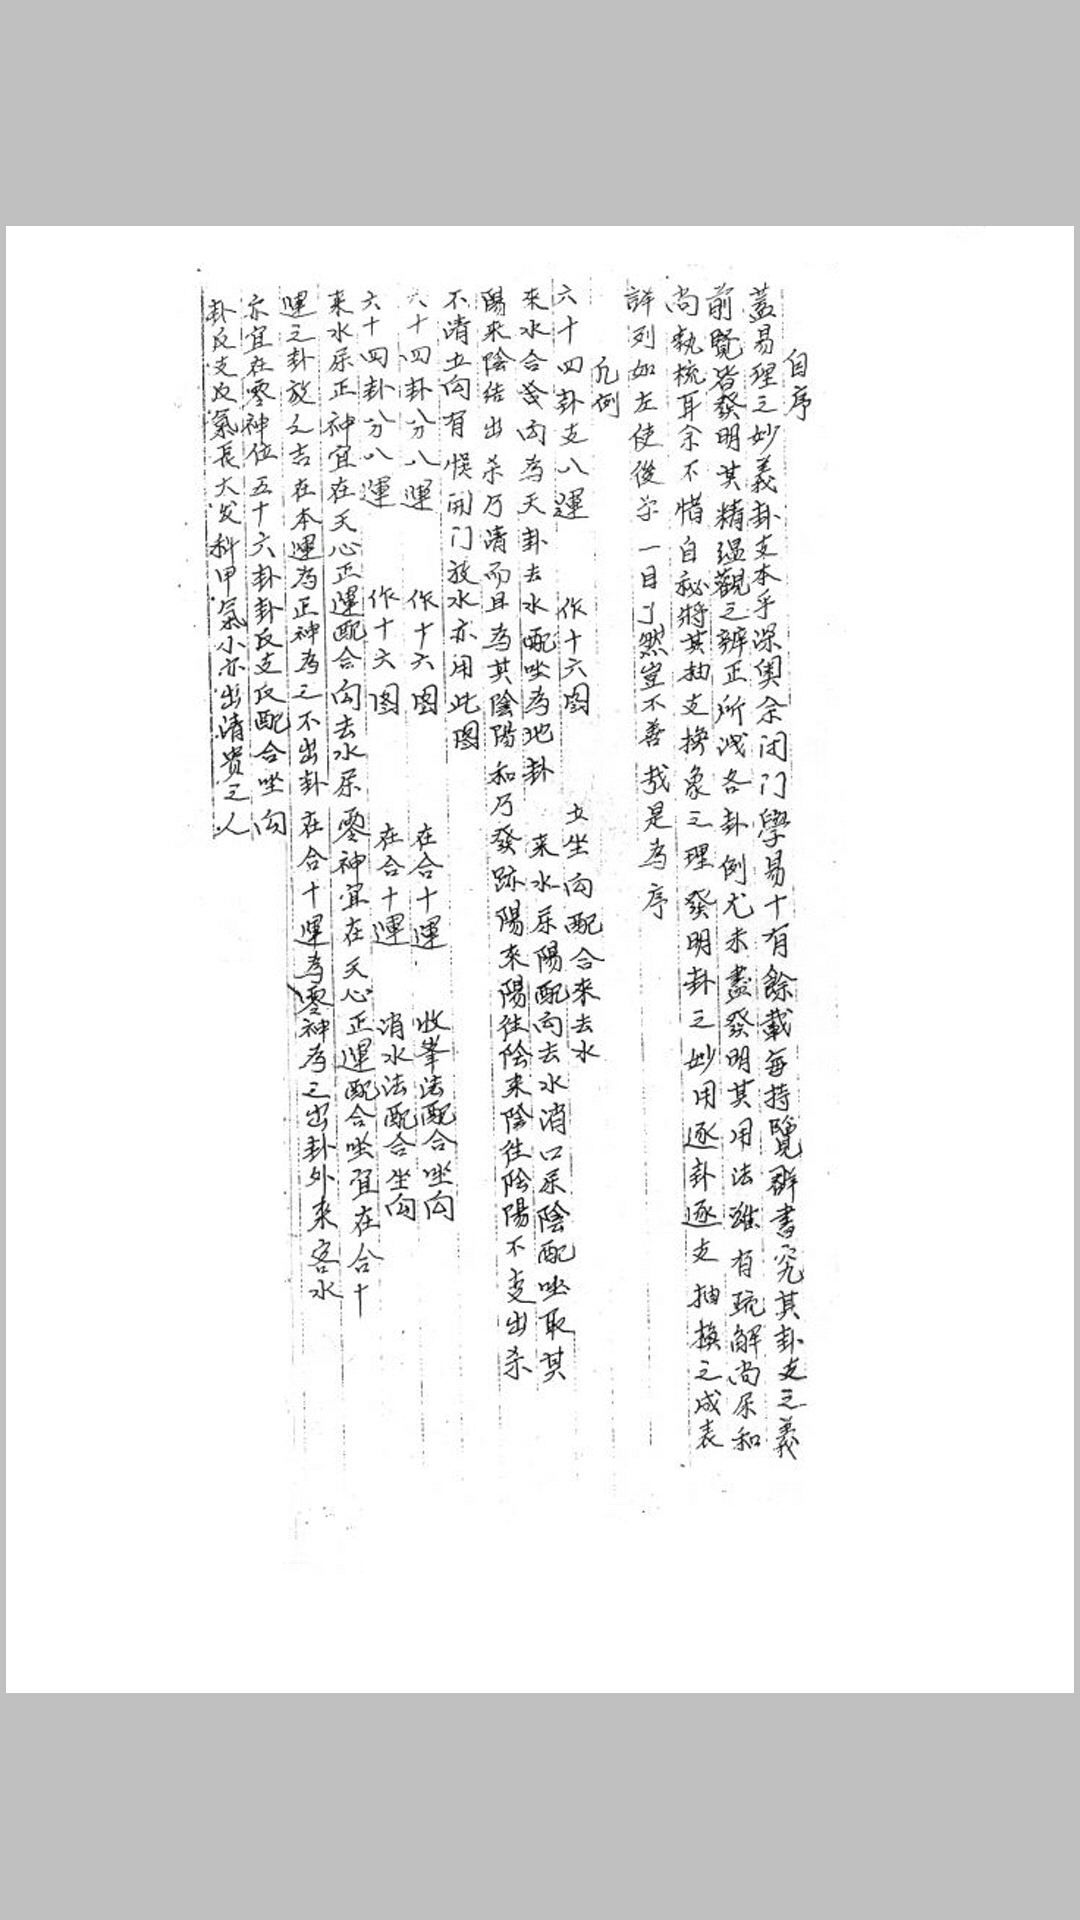 自序
蓋易理之妙義卦支本乎深奧余闭门學易十有餘載每持覽群書究其卦支之義
前覽皆發明其精蘊觀之辨正所洩各卦例尤未盡發明其用法雖有疏解尚屎和
尚執梳耳余不惜自秘將其抽支换象之理發明卦之妙用逐卦逐支抽換之成表
詳列如左使後学一目了然豈不善哉是為序
凡例
六十四卦支八運 作十六图 立坐向配合来去水
來水合向為天卦去水配坐為地卦 来水屎陽配向去水消口屎陰配坐取其
陽來陰结出杀乃清而且為其陰陽和乃發跡陽来陽往陰来陰往陰陽不变出杀
不清立向有悮開门放水亦用此图
六十四卦分八運 作十六图 在合十運 收峯法配合坐向
六十四卦分八運 作十六图 在合十運 消水法配合坐向
来水屎正神宜在天心正運配合向去水屎零神宜在天心正運配合坐宜在合十
運之卦放之吉在本運為正神為之不出卦在合十運為零神為之出卦外来客水
亦宜在零神位五十六卦卦反支反配合坐向
卦反支反氣長大发科甲氣小亦出清贵之人